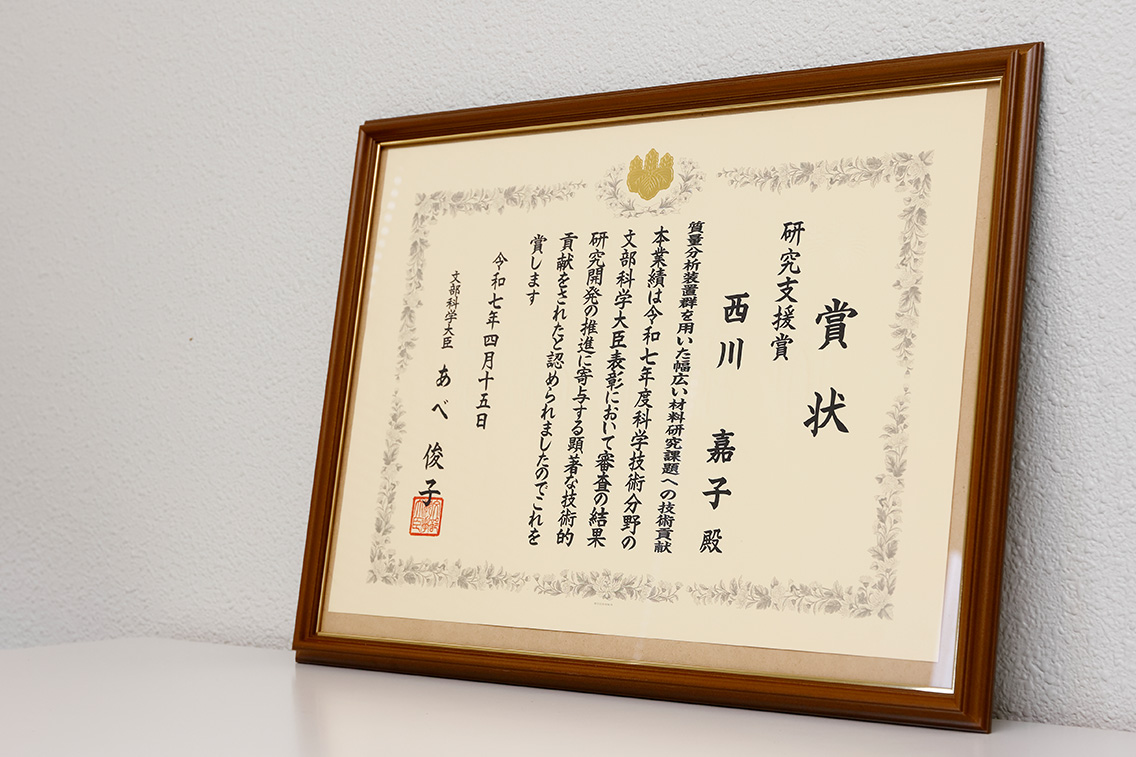 賞状
研究支援賞
西川 嘉子 殿
質量分析装置群を用いた幅広い材料研究課題への技術貢献
本業績は令和七年度科学技術分野の
文部科学大臣表彰において審査の結果
研究開発の推進に寄与する顕著な技術的
貢献をされたと認められましたのでこれを
賞します
令和七年四月十五日
文部科学大臣 あべ 俊子